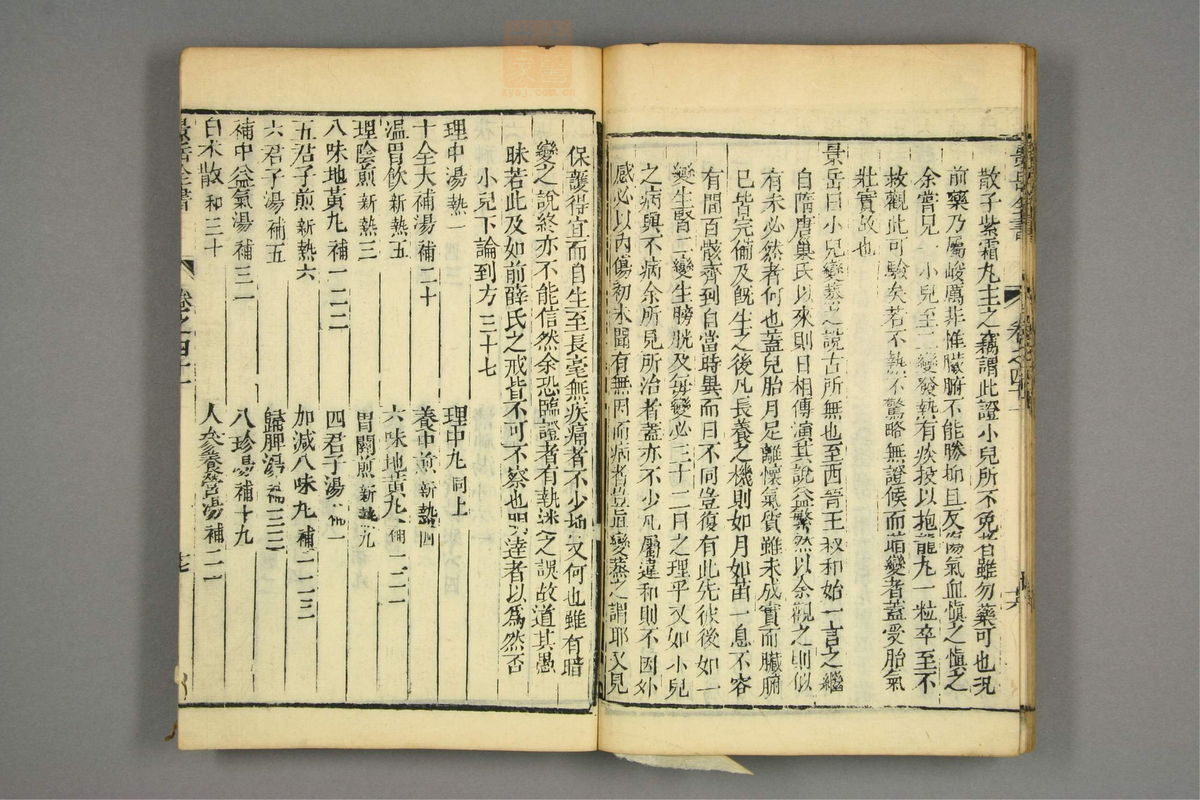 散子紫霜丸主之竊謂此證小兒所不免者雖勿藥可也況
前藥乃屬峻厲非惟臟腑不能勝抑且反傷氣血愼之愼之
余嘗見一小兒至二變發熱有痰投以抱龍丸一粒卒至不
救觀此可驗矣若不熱不驚略無證候而暗變者蓋受胎氣
壯實故也
景岳曰小兒變蒸之說古所無也至西晉王叔和始一言之繼
自隋唐巢氏以來則日相傳演其說益繁然以余觀之則似
有未必然者何也蓋兒胎月足離懷氣質雖未成實而臟腑
已皆完備及旣生之後凡長養之機則如月如苗一息不容
有間百骸齊到自當時異而日不同豈復有此先彼後如一
變生腎二變生膀胱及每變必三十二日之理乎又如小兒
之病與不病余所見所治者蓋亦不少凡屬違和則不因外
感必以內傷初未聞有無因而病者豈眞變蒸之謂耶又見
保護得宜而自生至長毫無疾痛者不少抑又何也雖有暗
變之說終亦不能信然余恐臨證者有執迷之誤故道其愚
昧若此及如前薛氏之戒皆不可不察也明達者以爲然否
小兒下論到方三十七
理中湯 熱一
理中丸 同上
十全大補湯 補二十
養中煎 新熱四
溫胃飮 新熱五
六味地黃丸 補一二一
理陰煎 新熱三
胃關煎 新熱九
八味地黃丸 補一二二
四君子湯 補一
五君子煎 新熱六
加減八味丸 補一二三
六君子湯 補五
歸脾湯 補三二
補中益氣湯 補三一
八珍湯 補十九
白朮散 和三十
人參養營湯 補二一
景岳全書
卷之四十一